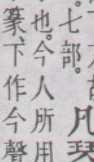 凡琴
七部。
也。今人所用
篆、下作今聲